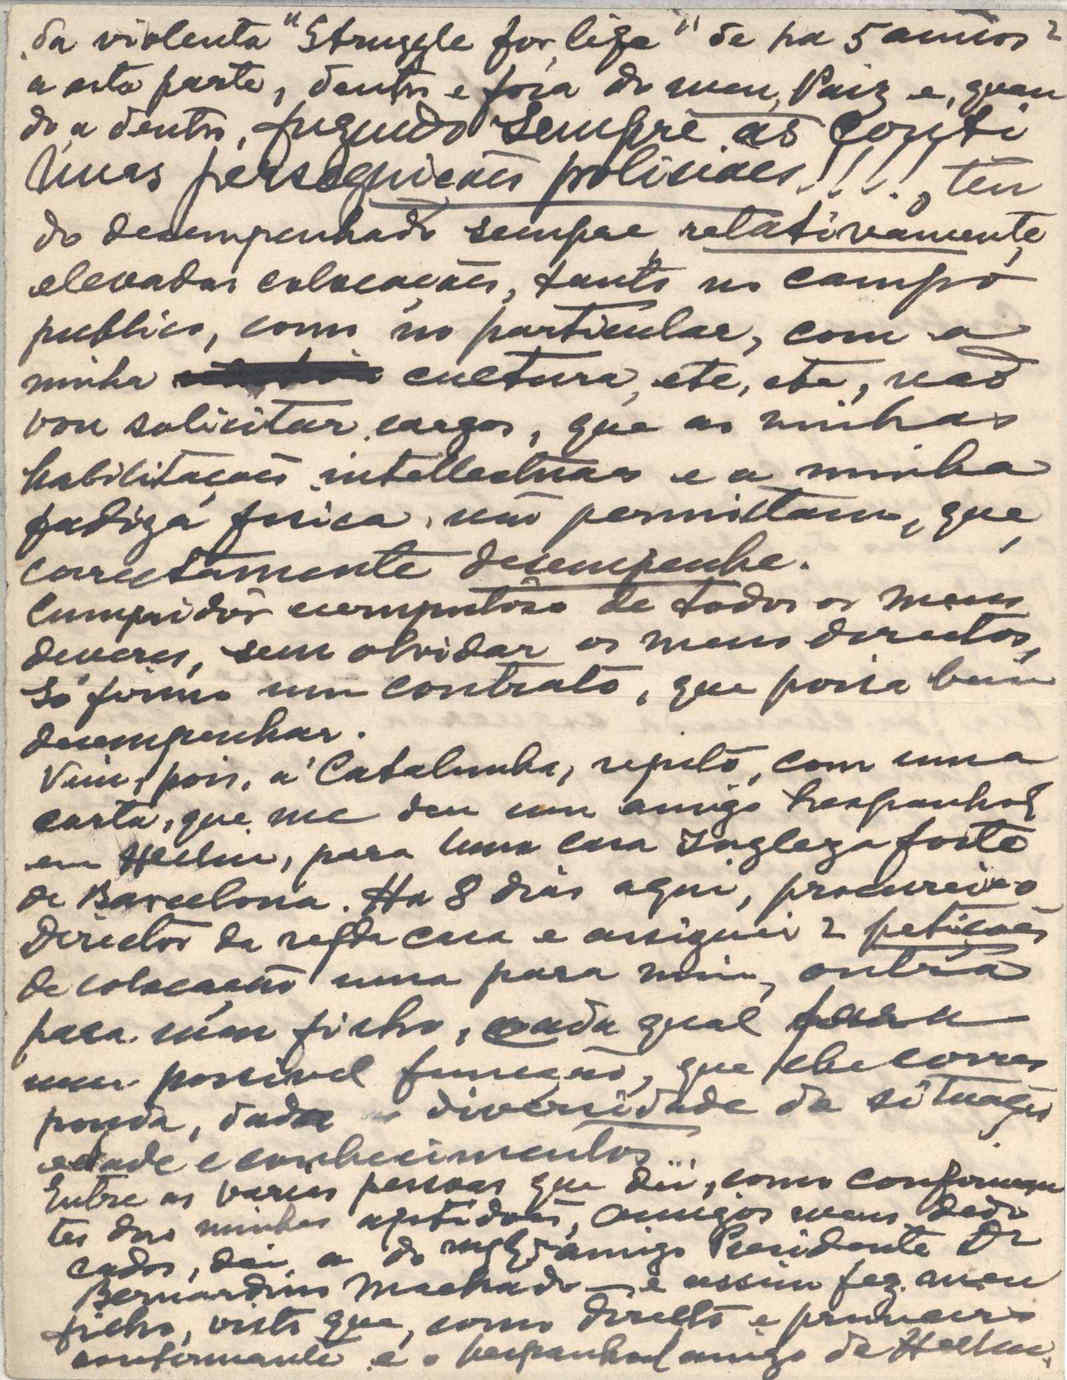 da violenta "Struggle for life" de ha 5 annos 2
a esta parte, dentro e fóra do meu Paiz e, quan
do a dentro, fugindo sempre ás conti
nuas perseguicões policiaes!!!!, ten
do desempenhado sempre relativamente,
elevadas colocações, tanto no campo
publico, como no particular, com a
minha cultura, etc, etc, não
vou solicitar cargos, que as minhas
habilitações intellectuaes e a minha
fadiga fisica não permittam, que,
correctamente desempenhe.
Cumpridôr escrupulôso de todos os meus
deveres, sem olvidar os meus direitos,
só firmo um contrato, que possa bem
desempenhar.
Vim, pois, á Catalunha, repito, com uma
carta, que me deu um amigo hespanhol
em, para uma casa Ingleza forte
de Barcelona. Ha 8 dias aqui, procurei o
Director da refda casa e assignei 2 petições
de colocação uma para mim, outra
para meu filho, cada qual para
uma possivel funcção, que lhe corres
ponda, dada a diversidade da situação
edade e conhecimentos...
Entre as varias pessoas que dei, como conforman
tes das minhas aptidões, amigos meus dedi
cados, dei a do amigo Presidente Dr
Bernardino Machado — e assim fez meu
filho, visto que, como directo e primeiro
conformante é o hespanhol amigo de